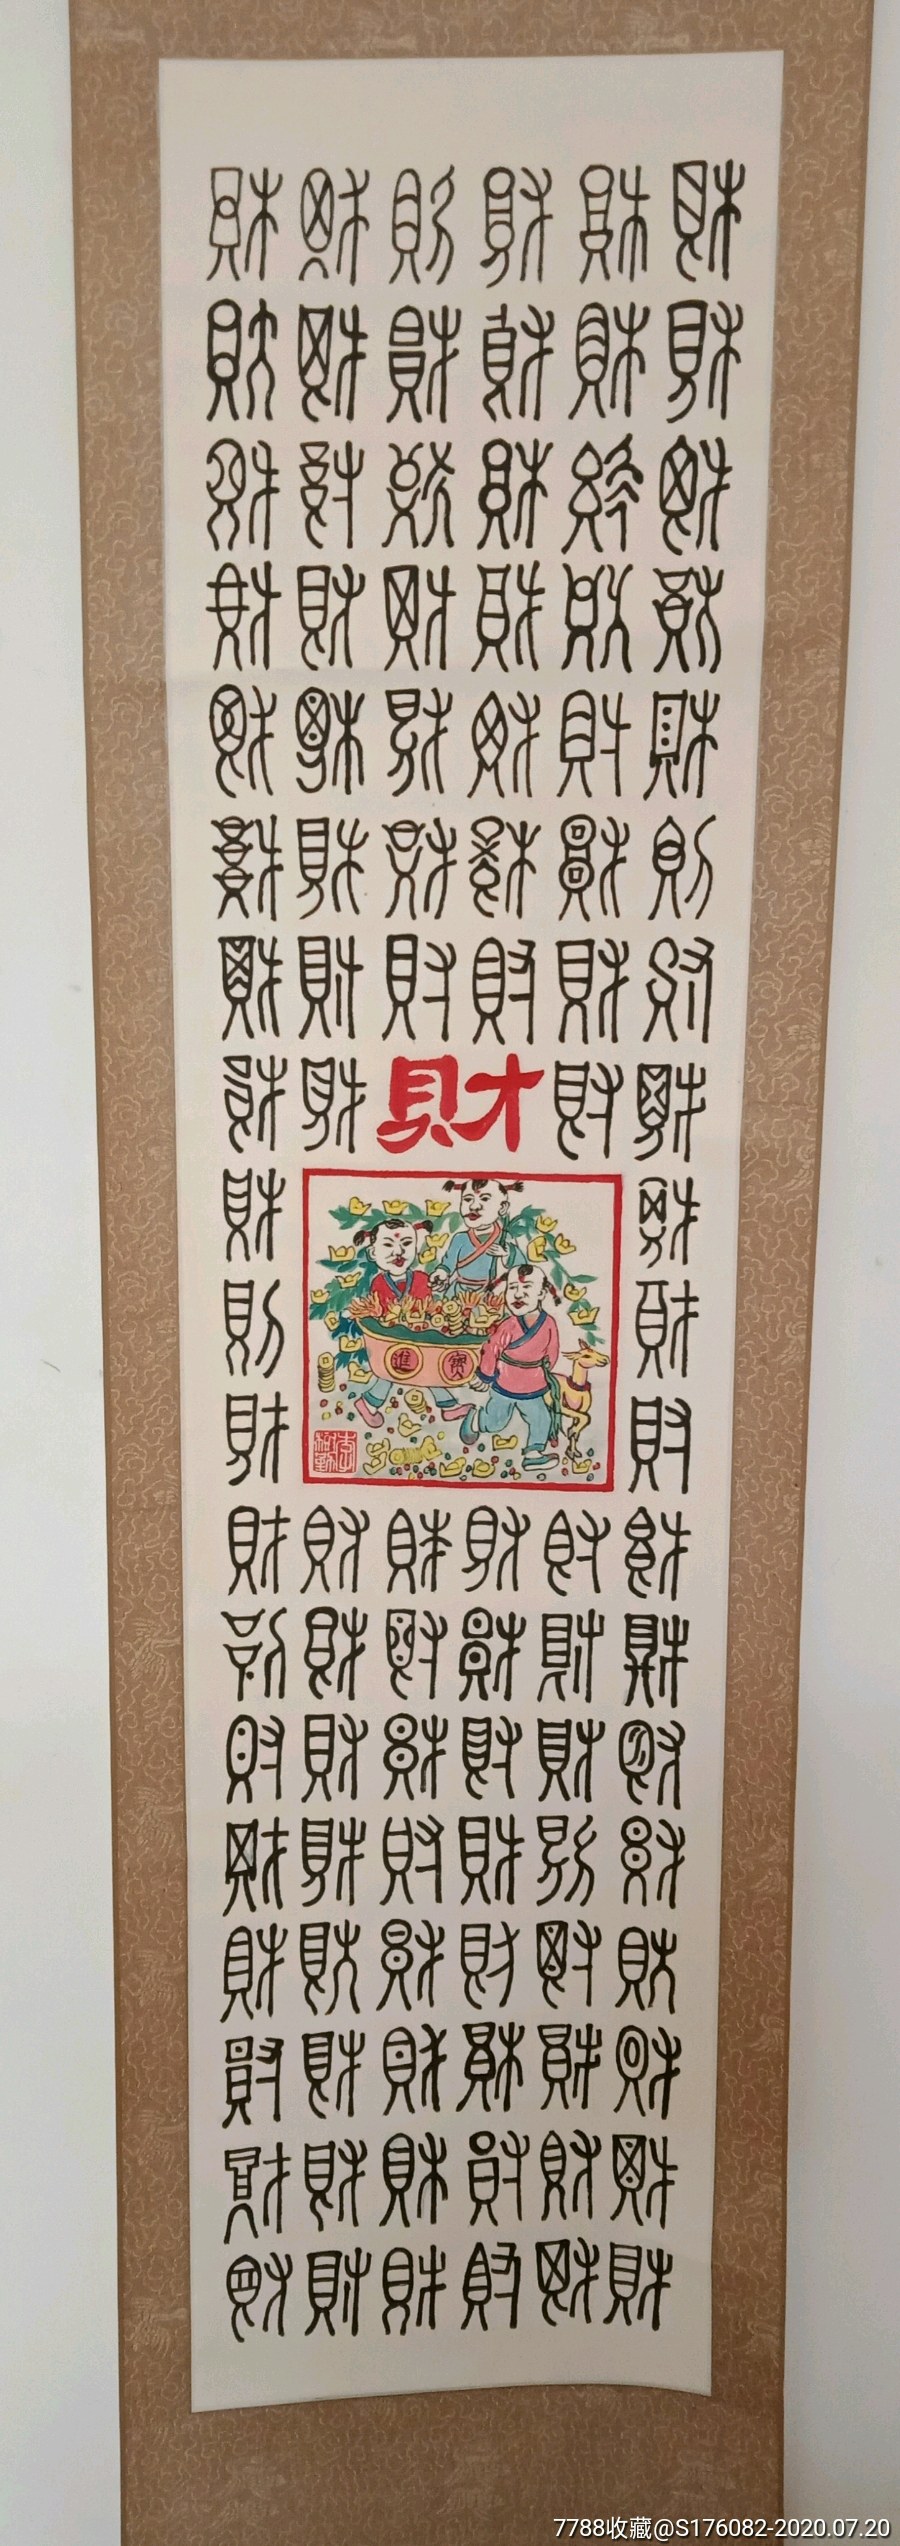 財財財財財財
財財財財財財
財財財財財財
財財財財財財
財財財財財財
財財財財財財
財財財財財財
財財財財財
財財
財財
財財
進寶
財財財財財財
財財財財財財
財財財財財財
財財財財財財
財財財財財財
財財財財財財
財財財財財財
財財財財財財
7788收藏@S176082-2020.07.20